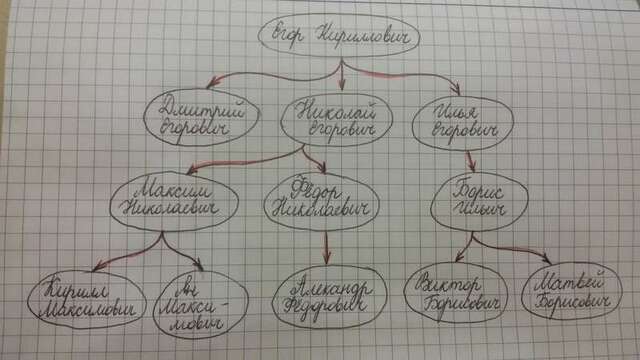 Егор Кириллович
Дмитрий
Егорович
Николай
Егорович
Илья
Егорович
Максим
Николаевич
Фёдор
Николаевич
Борис
Ильич
Кирилл
Максимович
Ян
Макси-
мович
Александр
Фёдорович
Виктор
Борисович
Матвей
Борисович